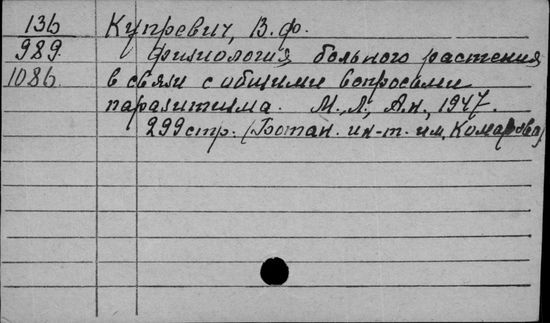 136 Купревич, В.Ф.
989. Физиология больного растения
1086. в связи с общими вопросами
паразитизма. М., Л., А.н., 1947.
299 стр. (Ботан. ин-т. им. Комарова)